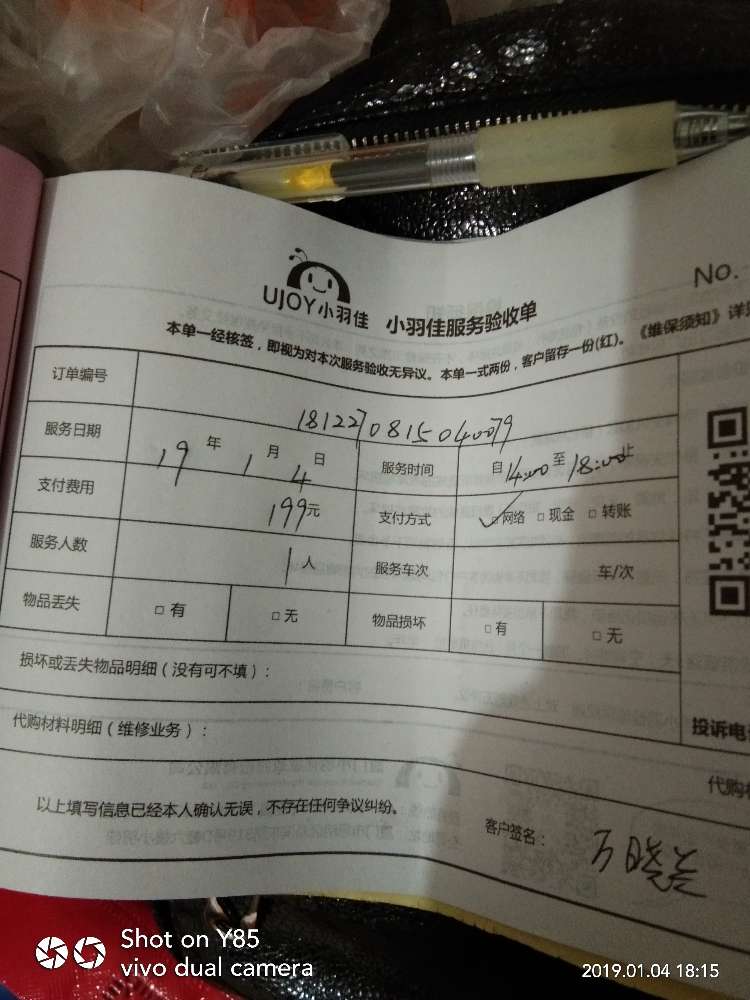 No.
UJOY小羽佳 小羽佳服务验收单
本单一经核签，即视为对本次服务验收无异议。本单一式两份，客户留存一份(红)。《维保须知》详见
订单编号 1812270815040079
服务日期 19年1月4日 服务时间 自14:00至18:00止
支付费用 199元 支付方式 ☑网络 □现金 □转账
服务人数 1人 服务车次 车/次
物品丢失 □有 □无 物品损坏 □有 □无
损坏或丢失物品明细（没有可不填）：
投诉电
代购材料明细（维修业务）：
代购材
以上填写信息已经本人确认无误，不存在任何争议纠纷。
客户签名：
Shot on Y85
vivo dual camera
2019.01.04 18:15